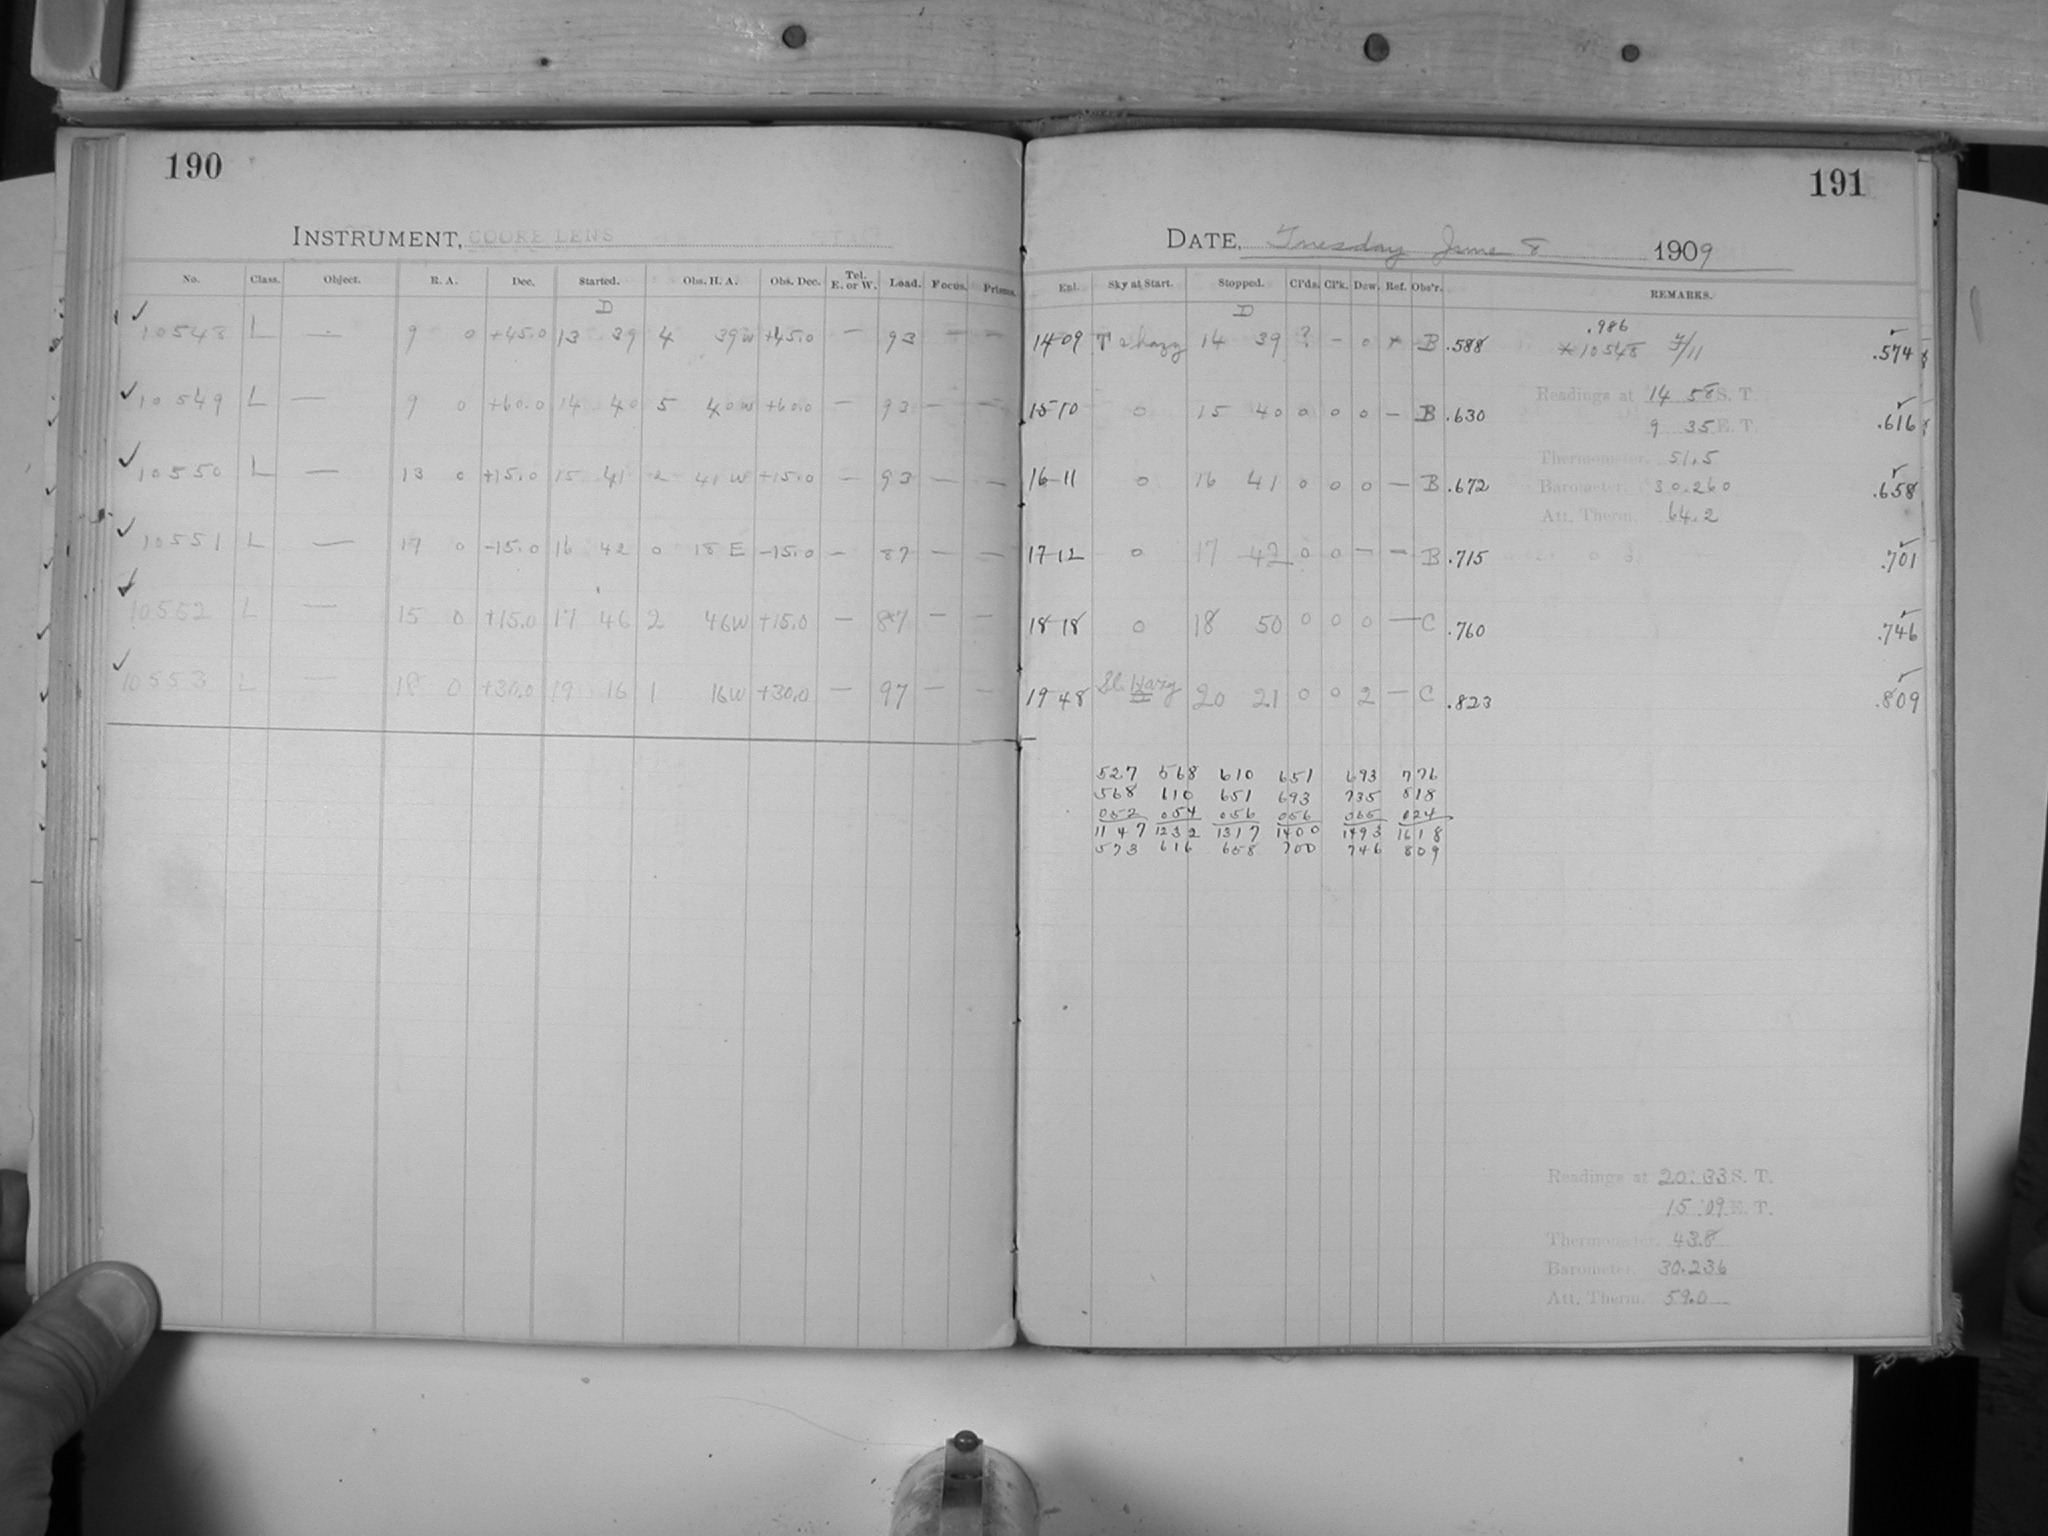 190
INSTRUMENT, COOKE LENS
No. Class. Object. R. A. Dec. Started. Obs. H. A. Obs. Dec. Tel. E. or W. Load. Focus. Prisms.
D
10548 L — 9 0 +45.0 13 39 4 39w +45.0 — 93 — —
10549 L — 9 0 +60.0 14 40 5 40w +60.0 — 93 — —
10550 L — 13 0 +15.0 15 41 2 41w +15.0 — 93 — —
10551 L — 17 0 -15.0 16 42 0 18 E -15.0 — 87 — —
10552 L — 15 0 +15.0 17 46 2 46w +15.0 — 87 — —
10553 L — 18 0 +30.0 19 16 1 16w +30.0 — 97 — —
191
DATE, Tuesday June 8 1909
Exl. Sky at Start. Stopped. Cl'ds. Cl'k. Dew. Ref. Obs'r. REMARKS.
D
14 09 hazy 14 39 ? — 0 * B .588 .986 .574
*10548 7/11
15 10 0 15 40 0 0 0 — B .630 .616
Readings at 14 58 S. T.
9 35 E. T.
Thermometer. 51.5
16 11 0 16 41 0 0 0 — B .672 .658
Barometer. 30.260
Att. Therm. 64.2
17 12 0 17 42 0 0 — — B .715 .701
18 18 0 18 50 0 0 0 — C .760 .746
19 48 Sl. Hazy 20 21 0 0 2 — C .823 .809
527 568 610 651 693 776
568 610 651 693 735 818
052 054 056 056 065 024
1147 1232 1317 1400 1493 1618
573 616 658 700 746 809
Readings at 20:33 S. T.
15:09 E. T.
Thermometer. 43.8
Barometer. 30.236
Att. Therm. 59.0